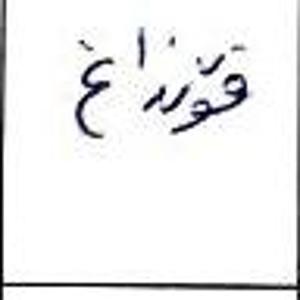 قوزداغ